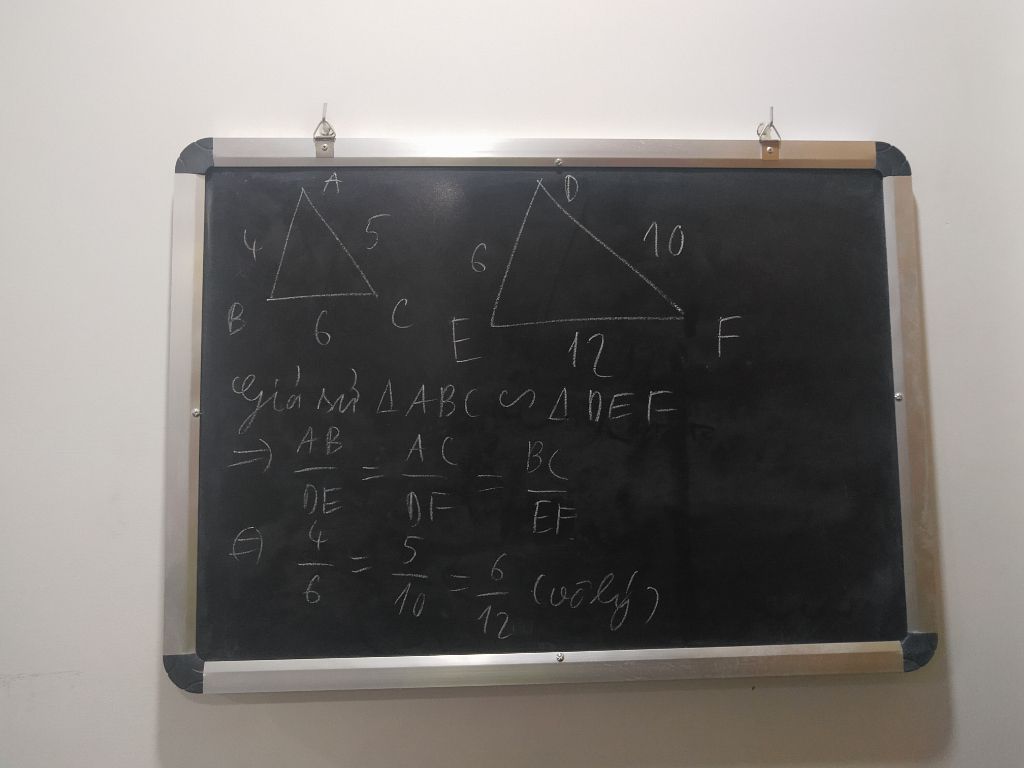 A
D
4
5
6
10
B
6
C
E
12
F
Giả sử Δ ABC ∽ Δ DEF
⇒ AB/DE = AC/DF = BC/EF
⇔ 4/6 = 5/10 = 6/12 (vô lý)